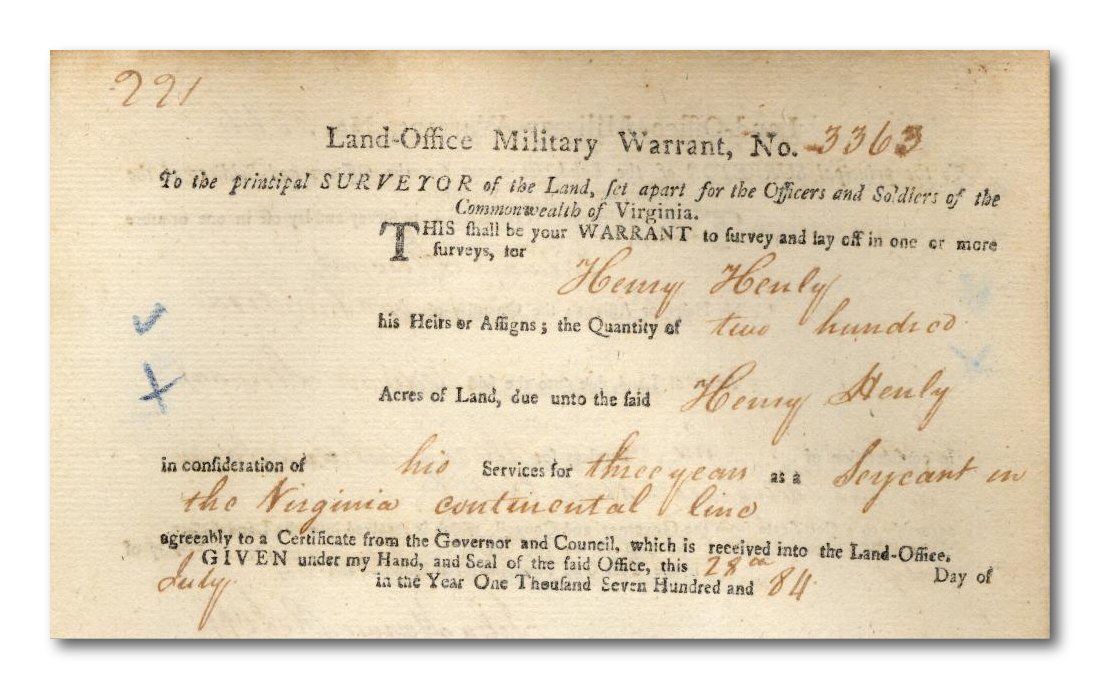 221
Land-Office Military Warrant, No. 3363
To the principal SURVEYOR of the Land, ſet apart for the Officers and Soldiers of the
Commonwealth of Virginia.
THIS ſhall be your WARRANT to ſurvey and lay off in one or more
ſurveys, for
Henry Henly
his Heirs or Aſſigns; the Quantity of two hundred
Acres of Land, due unto the ſaid Henry Henly
in conſideration of his Services for three years as a Serjeant in
the Virginia continental line
agreeably to a Certificate from the Governor and Council, which is received into the Land-Office.
GIVEN under my Hand, and Seal of the ſaid Office, this 28th Day of
July in the Year One Thouſand Seven Hundred and 84.